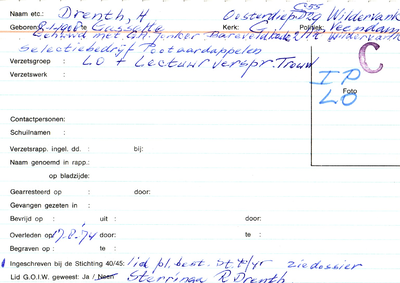 Naam etc.: Drenth, H Oosterdiep Wildervank
Geboren Kerk: G Positie: Veendam
Gehuwd met G.H. Jonker Wildervank
Selectiebedrijf Pootaardappelen
Verzetsgroep : LO + Lectuur verspr. Trouw
Verzetswerk :
C
IP
LO
Foto
Contactpersonen:
Schuilnamen :
Verzetsrapp. ingel. dd. : bij:
Naam genoemd in rapp.:
op bladzijde:
Gearresteerd op : door:
Gevangen gezeten in :
Bevrijd op : uit : door:
Overleden op : door: te :
Begraven op : te :
Ingeschreven bij de Stichting 40/45: lid pl. best. zie dossier
Lid G.O.I.W. geweest: Ja / Neen R Drenth